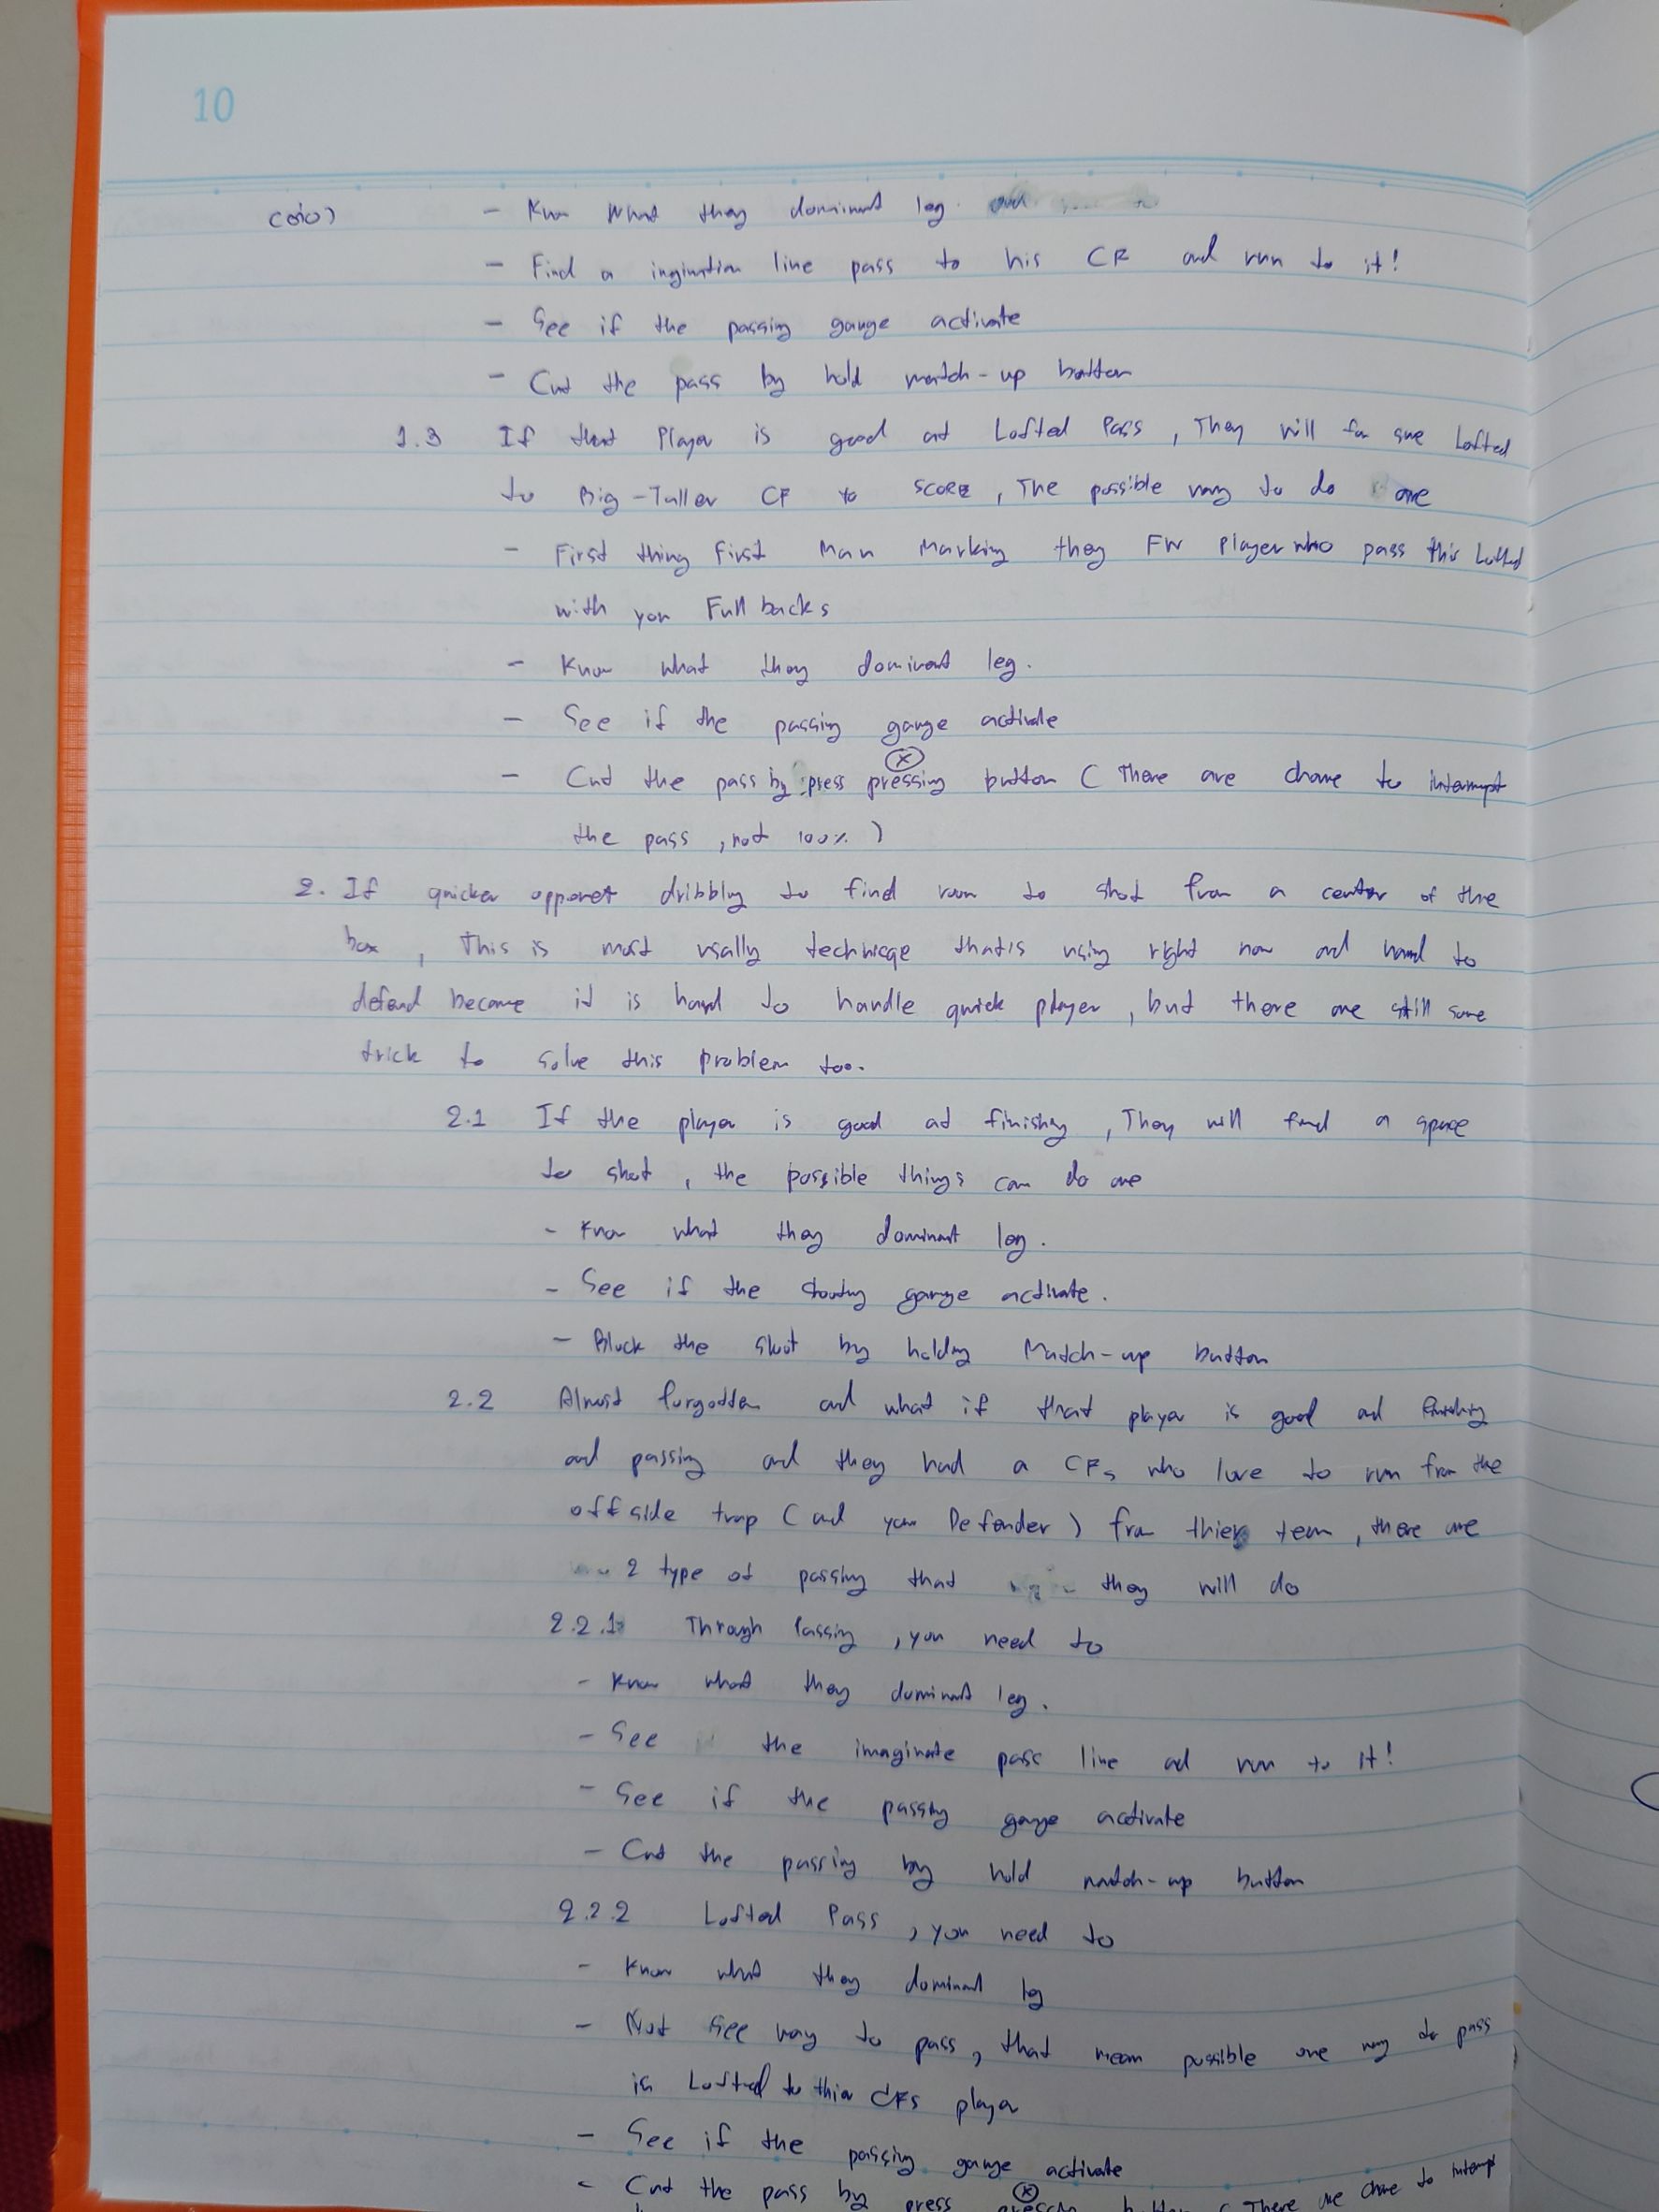 10
- Know What they dominant leg.
- Find a line pass to his CF and run to it!
- See if the passing gauge activate
- Cut the pass by hold match-up button
1.3 If that Player is good at Lofted Pass, They will for sure Lofted
to Big-Taller CF to SCORE, The possible way to do are
- First thing first Man Marking they FW Player who pass this Lofted
with your Full backs
- Know what they dominant leg.
- See if the passing gauge activate
ⓧ
- Cut the pass by press pressing button ( There are chance to interrupt
the pass, not 100% )
2. If quicker opponet dribbling to find room to shot from a center of the
box, This is most usally technicqe thatis using right now and hard to
defend become it is hard to handle quick player, but there are still some
trick to solve this problem too.
2.1 If the player is good at finishing, They will find a space
to shot, the possible things can do are
- Know what they dominant leg.
- See if the shooting gauge activate.
- Block the shot by holding Match-up button
2.2 Almost forgotten and what if that player is good at finishing
and passing and they had a CFs who love to run from the
offside trap ( and your Defender ) from thier team, there are
2 type of passing that they will do
2.2.1 Through Passing, you need to
- Know what they dominant leg.
- See the imaginate pass line and run to it!
- See if the passing gauge activate
- Cut the passing by hold match-up button
2.2.2 Lofted Pass, you need to
- Know what they dominant leg
- Not see way to pass, that mean possible one way to pass
is Lofted to thier CFs player
- See if the passing gauge activate
ⓧ
- Cut the pass by press pressing button ( There are chance to interrupt